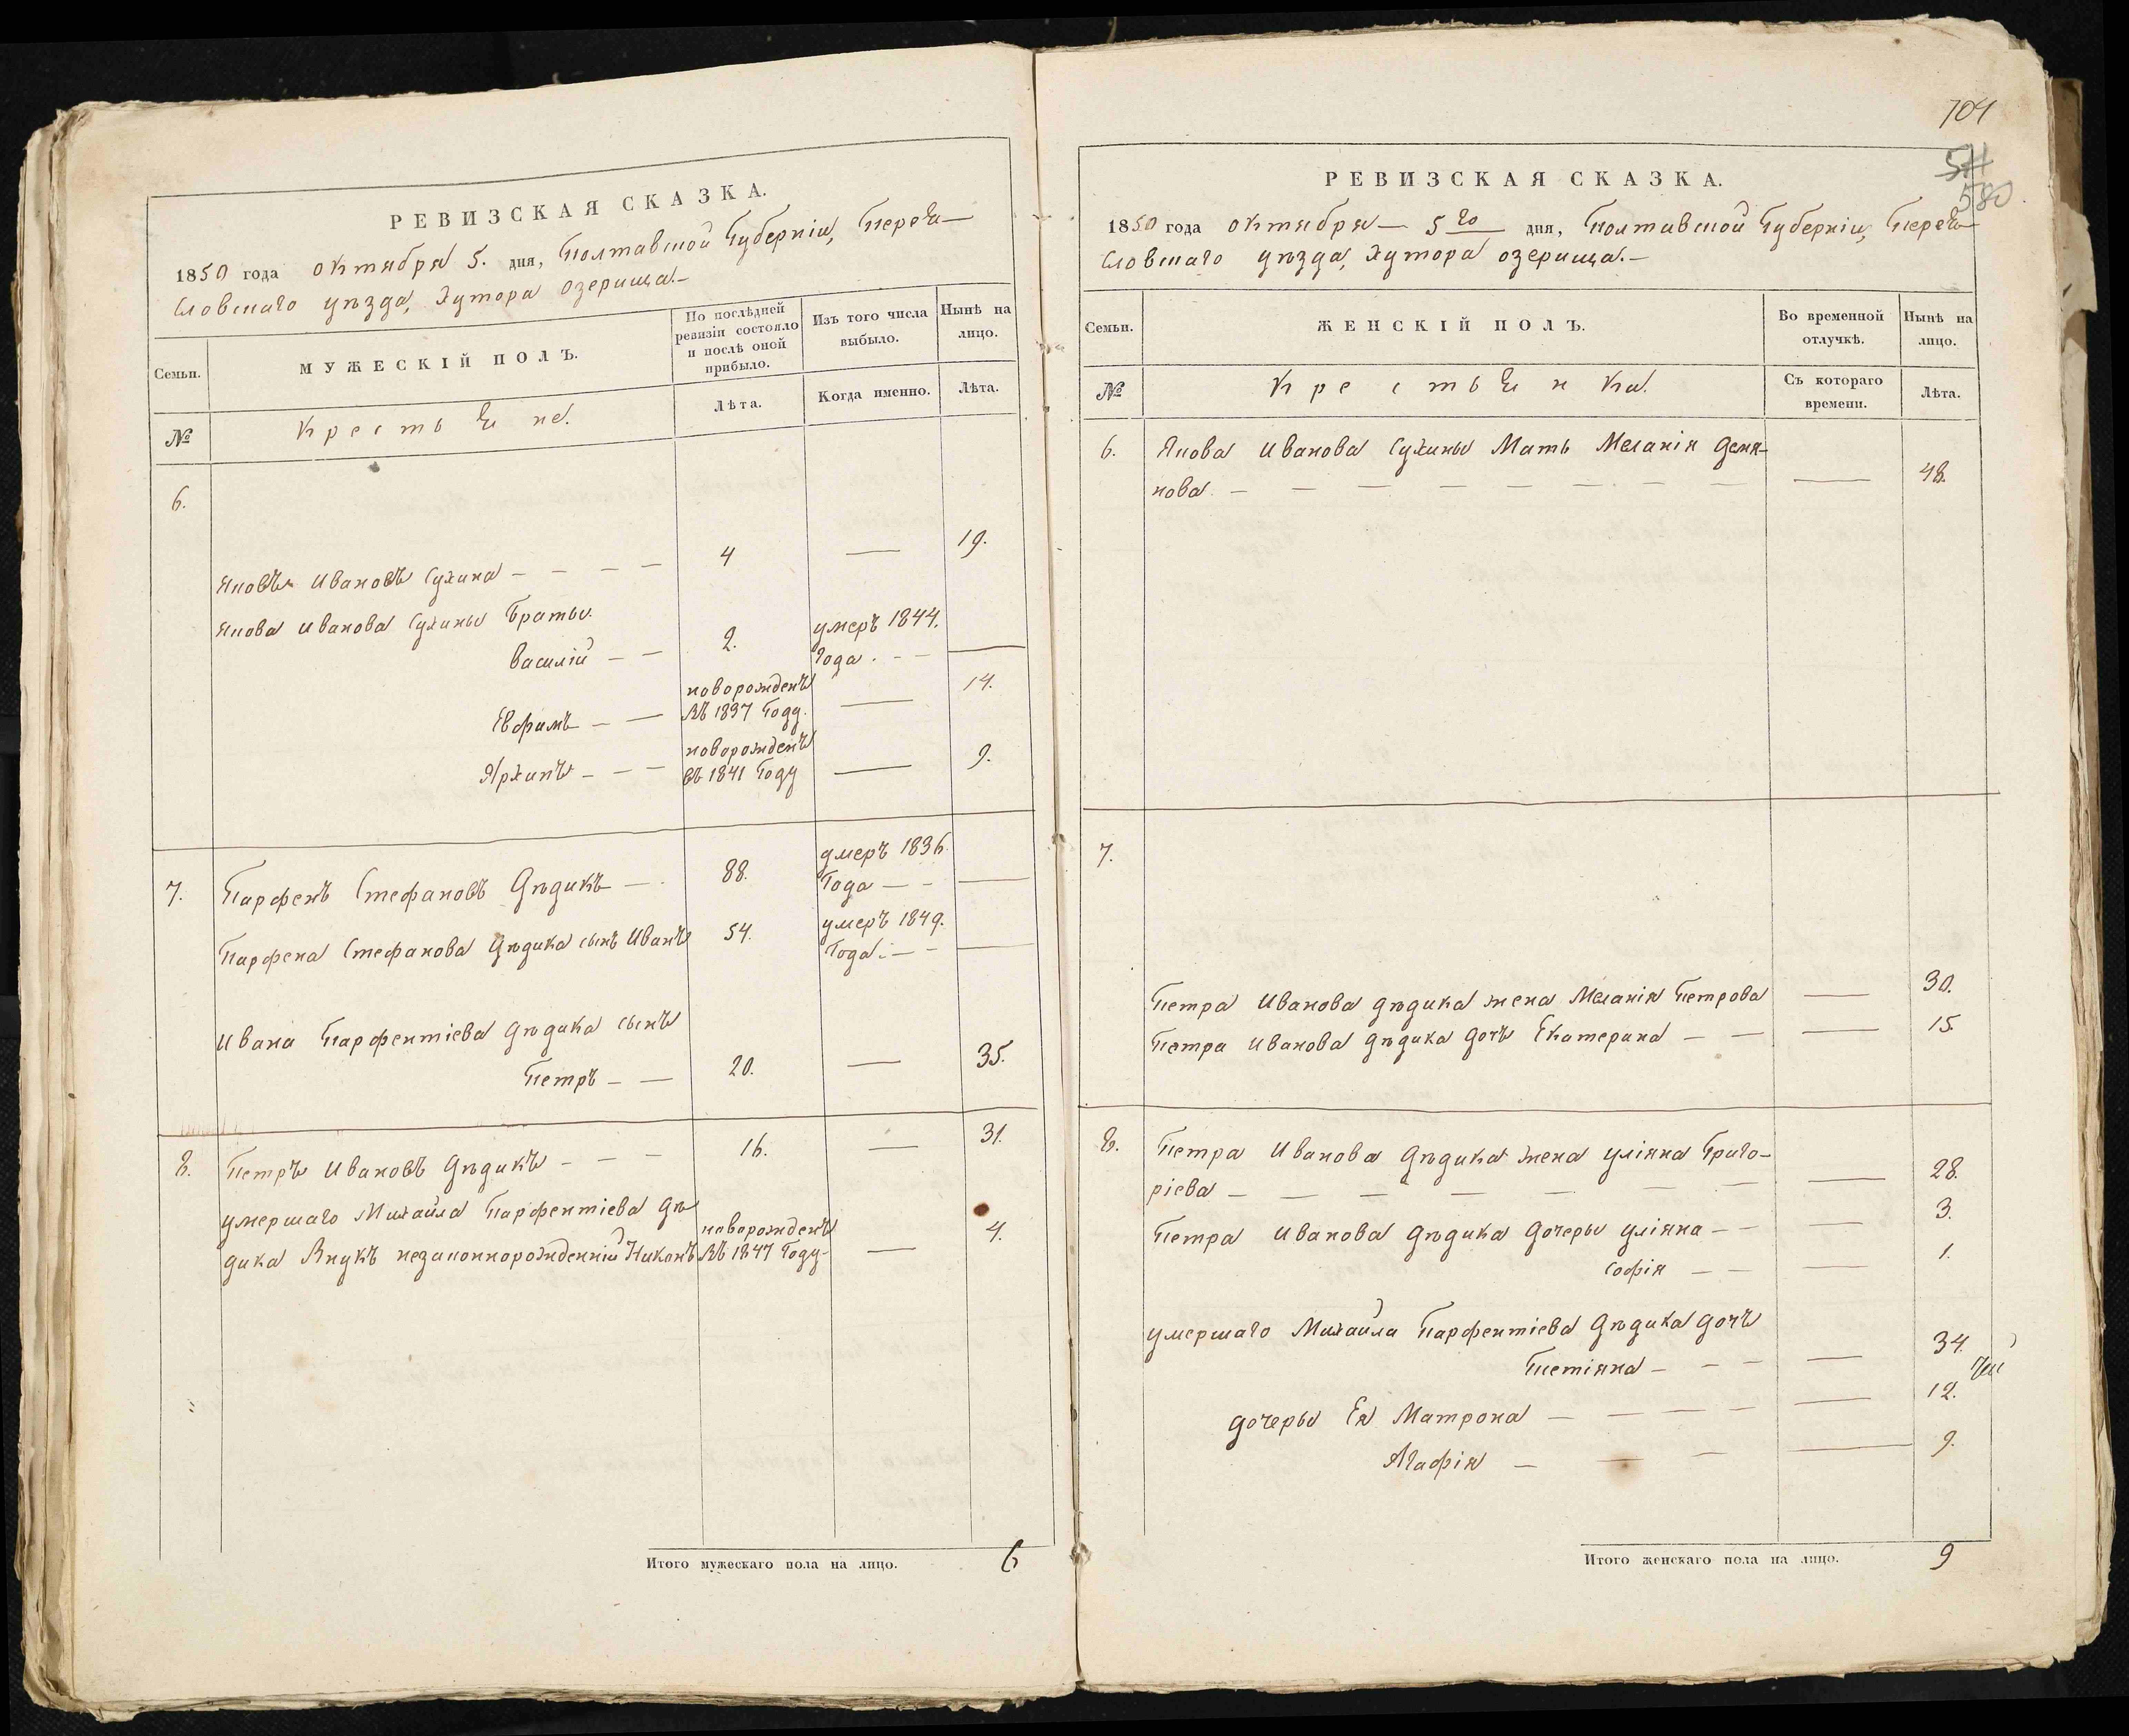 РЕВИЗСКАЯ СКАЗКА.
1850 года октября 5. дня, Полтавской Губерніи, Перея-
словскаго уѣзда, хутора озерища.-
Семьи.
МУЖЕСКІЙ ПОЛЪ.
По послѣдней
ревизіи состояло
и послѣ оной
прибыло.
Изъ того числа
выбыло.
Нынѣ на
лицо.
№
Крестьяне.
Лѣта.
Когда именно.
Лѣта.
6.
Яковъ Ивановъ Сухина - - - - 4 — 19.
Якова Иванова Сухины Братья.
Василій - - 2. умеръ 1844.
года. - - —
Ефимъ - - новорожденъ
въ 1837 году. — 14.
Архипъ - - - новорожденъ
въ 1841 году — 9.
7. Парфенъ Стефановъ Дѣдикъ - . 88. умеръ 1836.
года - - —
Парфена Стефанова Дѣдика сынъ Иванъ 54. умеръ 1849.
года. - - —
Ивана Парфентіева Дѣдика сынъ
Петръ - - 20. — 35.
8. Петръ Ивановъ Дѣдикъ - - - 16. — 31.
умершаго Михайла Парфентіева Дѣ
дика Внукъ незаконнорожденній Никонъ новорожденъ
въ 1847 году- — 4.
Итого мужескаго пола на лицо. 6
704
580
РЕВИЗСКАЯ СКАЗКА.
1850 года октября - 5го дня, Полтавской Губерніи, Перея-
словскаго уѣзда, хутора озерища.-
Семьи.
ЖЕНСКІЙ ПОЛЪ.
Во временной
отлучкѣ.
Нынѣ на
лицо.
№
Крестьянки.
Съ котораго
времени.
Лѣта.
6. Якова Иванова Сухины Мать Меланія Демя-
нова. - - - - - - - - — 48.
7.
Петра Иванова Дѣдика жена Меланія Петрова — 30.
Петра Иванова Дѣдика дочь Екатерина - - — 15.
8. Петра Иванова Дѣдика жена Уліяна Григо-
ріева - - - - - - - — 28.
Петра Иванова Дѣдика дочеры Уліяна - - — 3.
Софія - - — 1.
умершаго Михайла Парфентіева Дѣдика дочь
Тетіяна - - - — 34.
дочеры Ея Матрона - - - - — 12.
Агафія - - - — 9.
Итого женскаго пола на лицо. 9